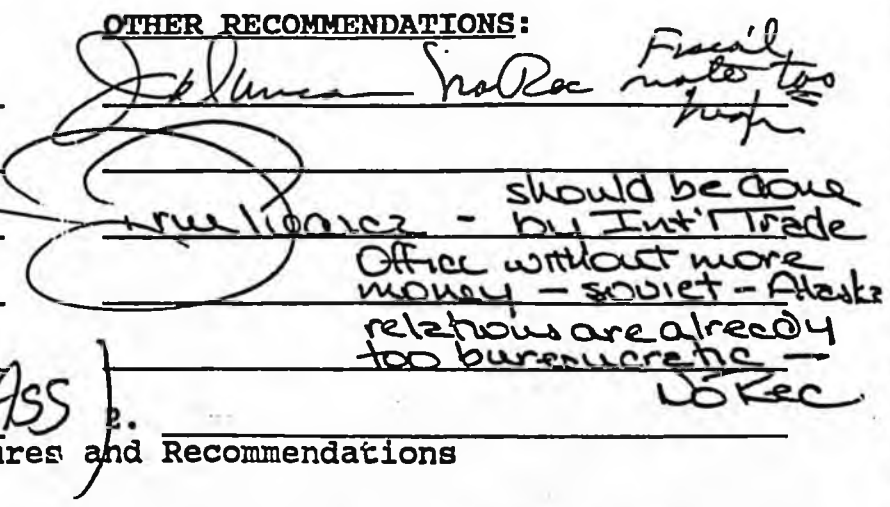 OTHER RECOMMENDATIONS:
No Rec Fiscal
note too
high
should be done
- by Int'l Trade
Office without more
money - soviet - Alaska
relations are already
too bureaucratic -
No Rec
Ass) 2.
ures and Recommendations